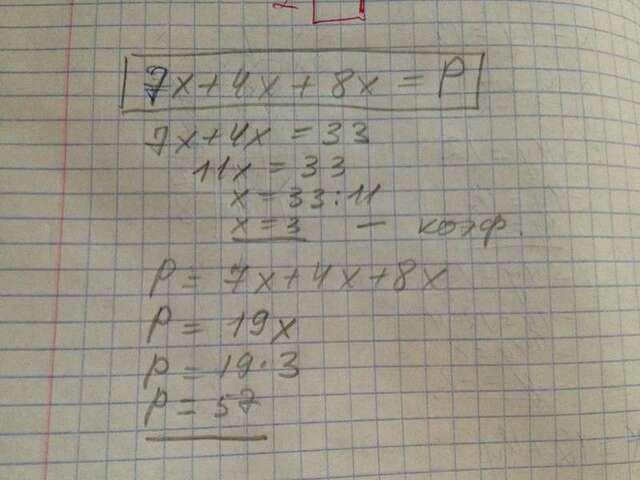 7x+4x+8x = P
7x+4x = 33
11x = 33
x = 33:11
x = 3 — коэф.
P = 7x+4x+8x
P = 19x
P = 19·3
P = 57